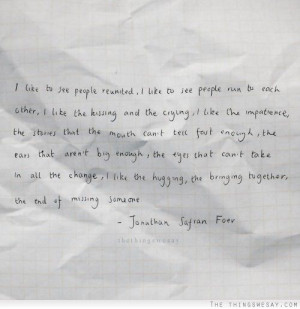 I like to see people reunited, I like to see people run to each
other, I like the kissing and the crying, I like the impatience,
the stories that the mouth can't tell fast enough, the
ears that aren't big enough, the eyes that can't take
in all the change, I like the hugging, the bringing together,
the end of missing someone
- Jonathan Safran Foer
thethingswesay
THE THINGSWESAY.COM